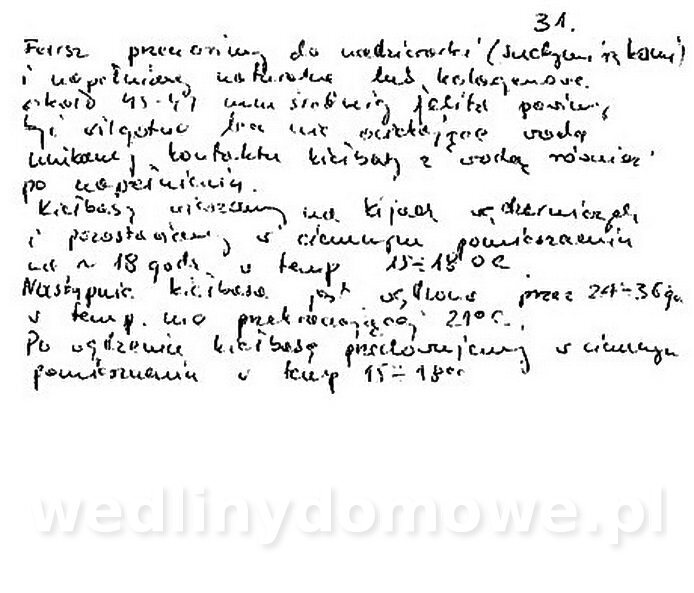 31.
Farsz przenosimy do nadziewarki (suchymi rękami)
i napełniamy naturalne lub kolagenowe
43-47 mm średnicy jelita powinny
być wilgotne lecz nie ociekające wodą
unikamy kontaktu kiełbasy z wodą również
po napełnieniu.
Kiełbasy wieszamy na kijach wędzarniczych
i pozostawiamy w ciemnym pomieszczeniu
na ~ 18 godz w temp 15÷18°C.
Następnie kiełbasa jest wędzona przez 24÷36 go
w temp. nie przekraczającej 21°C.
Po wędzeniu kiełbasę przechowujemy w ciemnym
pomieszczeniu w temp 15÷18°C
wedlinydomowe.pl